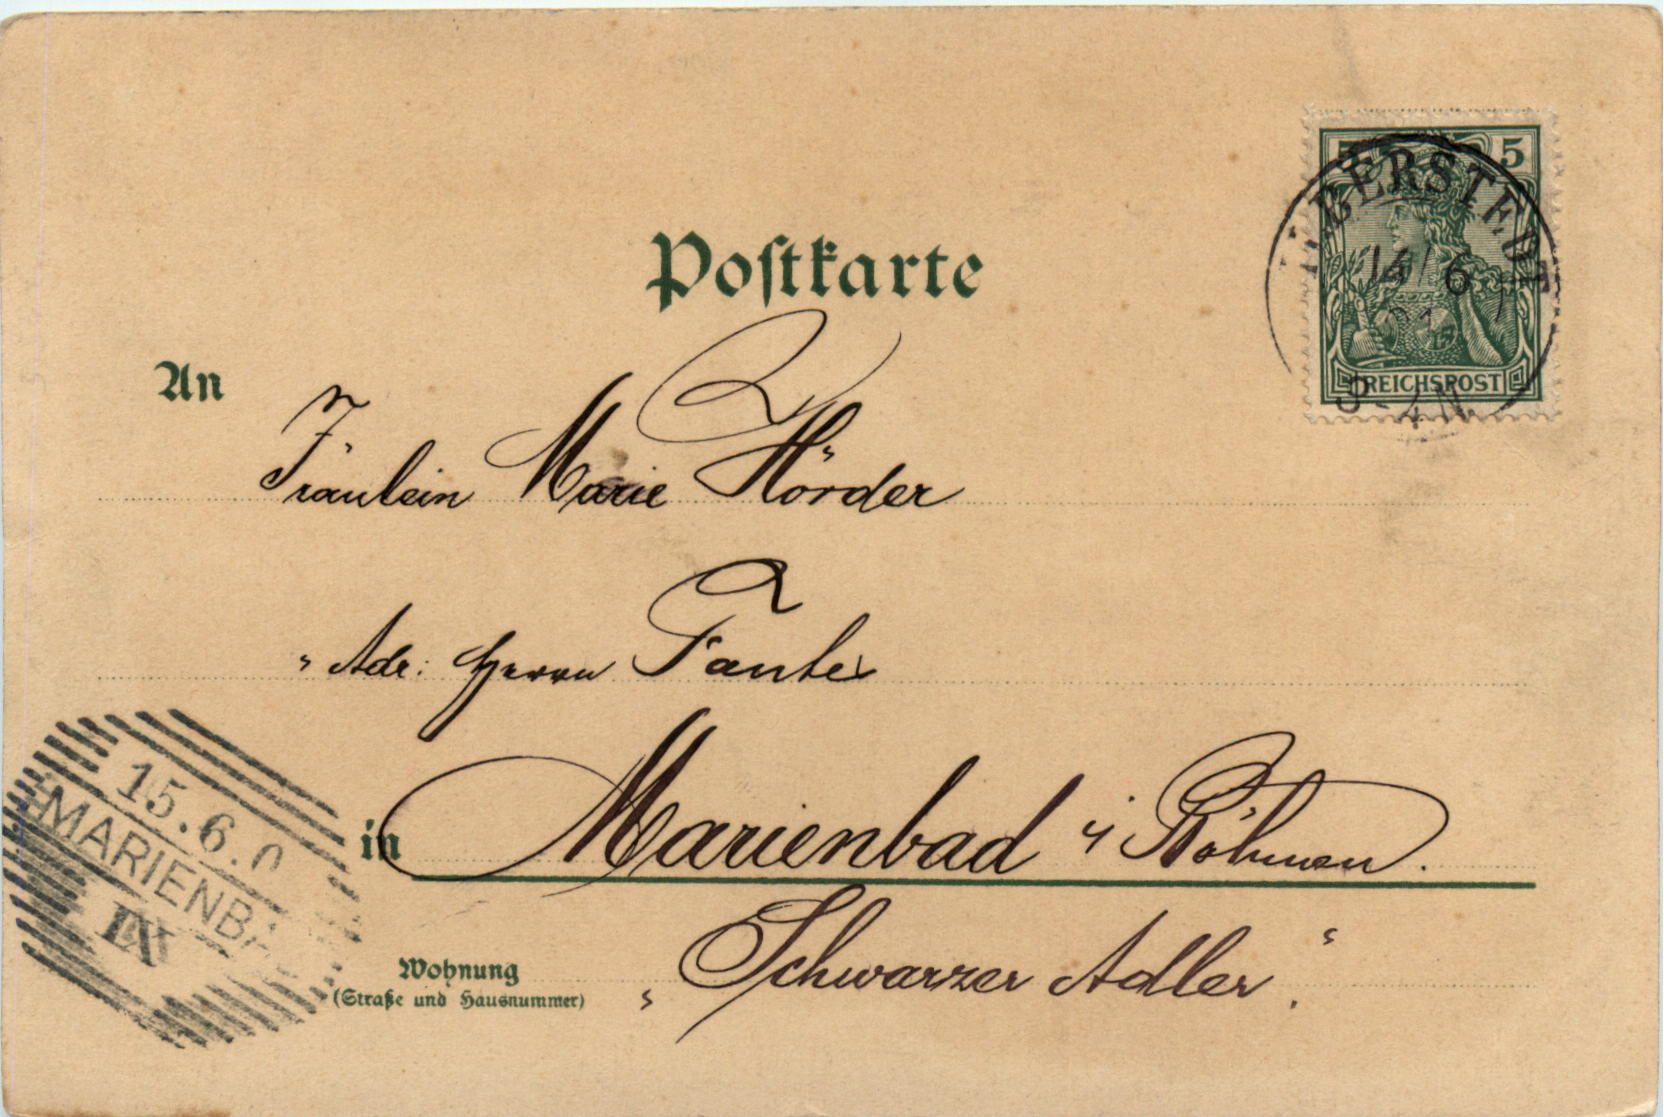 Postkarte
5 5
REICHSPOST
14/6
01
3-4N
An
Fräulein Marie Hörder
Adr: Herrn
in Marienbad i/ Böhmen.
Wohnung
(Straße und Hausnummer)
„Schwarzer Adler“.
15.6.0
MARIENBA
IX